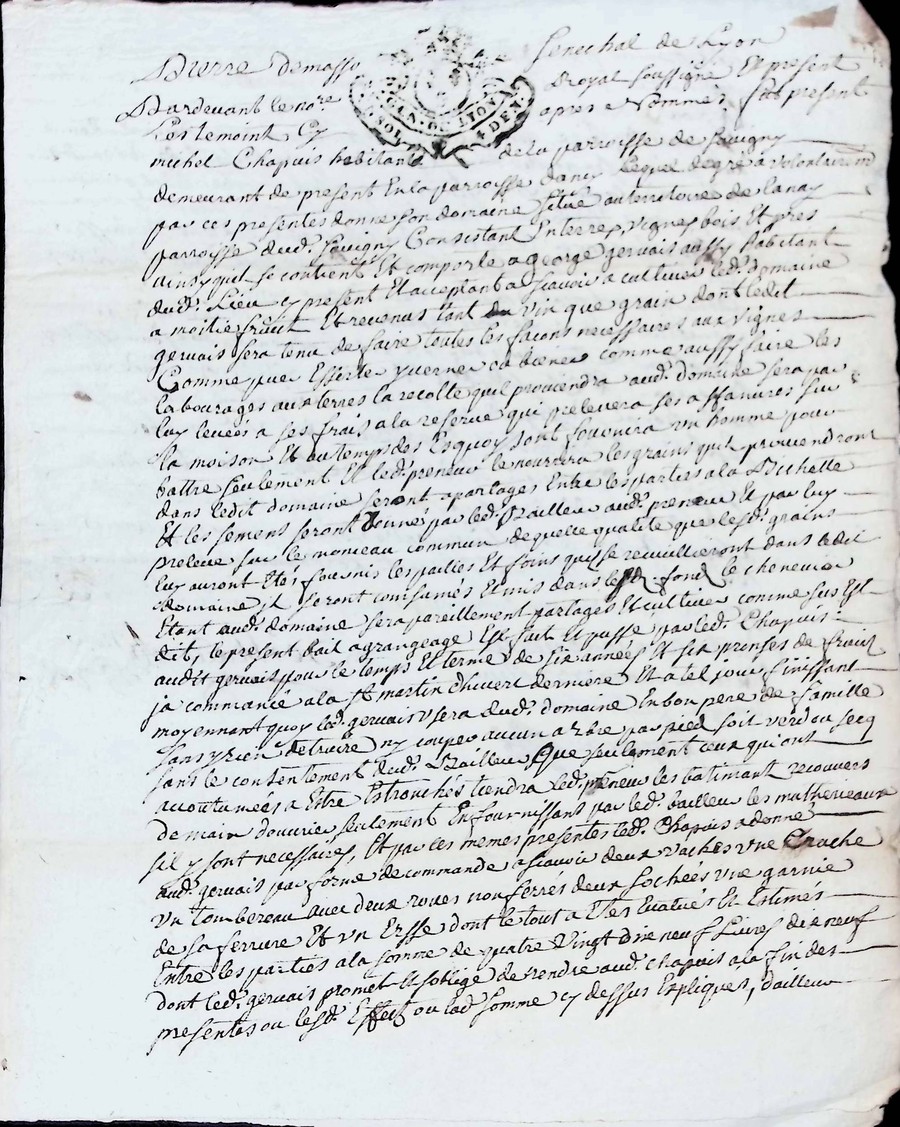 Pierre Demasso Senechal de Lyon
Pardevant le no.re Royal soussigné Et present
Les temoint Cy apres Nommés fut present
michel Chapuis habitant de la parroisse de Savigny
demeurant de present En la parroisse dancy Lequel degre a volontairem.t
par ces presentes donne son domaine situé au territoire de lanay
parroisse dud. Savigny Consistant En terres, vignes bois Et prés
ainsy quil se contient Et comporte a george gervais aussy habitant
dud. Lieu cy present Et acceptant a scavoir a cultiver led. domaine
a moitié fruit Et revenus tant du vin que grain dont ledit
gervais sera tenu de faire toutes les façons necessaires aux vignes
Comme puer Esserter yverner ca biener comme aussy faire les
labourages aux terres la recolte quil proviendra aud. domaine sera par
luy levées a ses frais a la reserve qui prelevera ses affanures sur
la moison Et au temps des Esquoy sont fournira un homme pour
battre seulement Et led. preneur le nourrira les grains qui proviendront
dans ledit domaine seront apartagés Entre les parties a la Bichette
Et les semens seront donnés par led. Bailleur aud. preneur Et par luy
prelevé sur le monceau commun de quelle qualité que lesd. grains
luy auront Etés fournis les pailles Et foins qui se recuillieront dans ledit
domaine seront consumés Et mis dans led. fond le chenevier
Etant aud. domaine sera pareillement partagés Et cultiver comme sus Est
dit, le present bail a grangeage Est fait Et passé par led. Chapuis
audit gervais pour le temps Et terme de six années Et six prenses de fruits
ja commancé a la St martin d'hivert derniere Et a tel jour finissant
moyennant quoy led. gervais usera dud. domaine En bon pere de famille
sans y rien detruire ny couper aucun arbre par pied soit verd ou secq
sans le consentement dud. Bailleur Que seulement ceux qui ont
accoutumées a Estre Estrouchés tiendra led. preneur les batimant recouvers
de main douvrier seulement En fournissant par led. bailleur les matheraux
sil y sont necessaires, Et par ces memes presentes led. Chapuis a donné
aud. gervais par forme de commande a scavoir deux vaches une Cruche
un tombereau avec deux roues non ferrés deux sochées une garnie
de sa ferrure Et un Ersse dont le tout a Etés Evalués Et Estimés
Entre les parties a la somme de quatre Vingt dix neuf Livres dix neuf
dont led. gervais promet Et soblige de rendre aud. chapuis a la fin des
presentes ou lesd. Effect ou lad. somme cy dessus Expliqués, dailleur
GEN. DE LYON
SOL
4 DEN